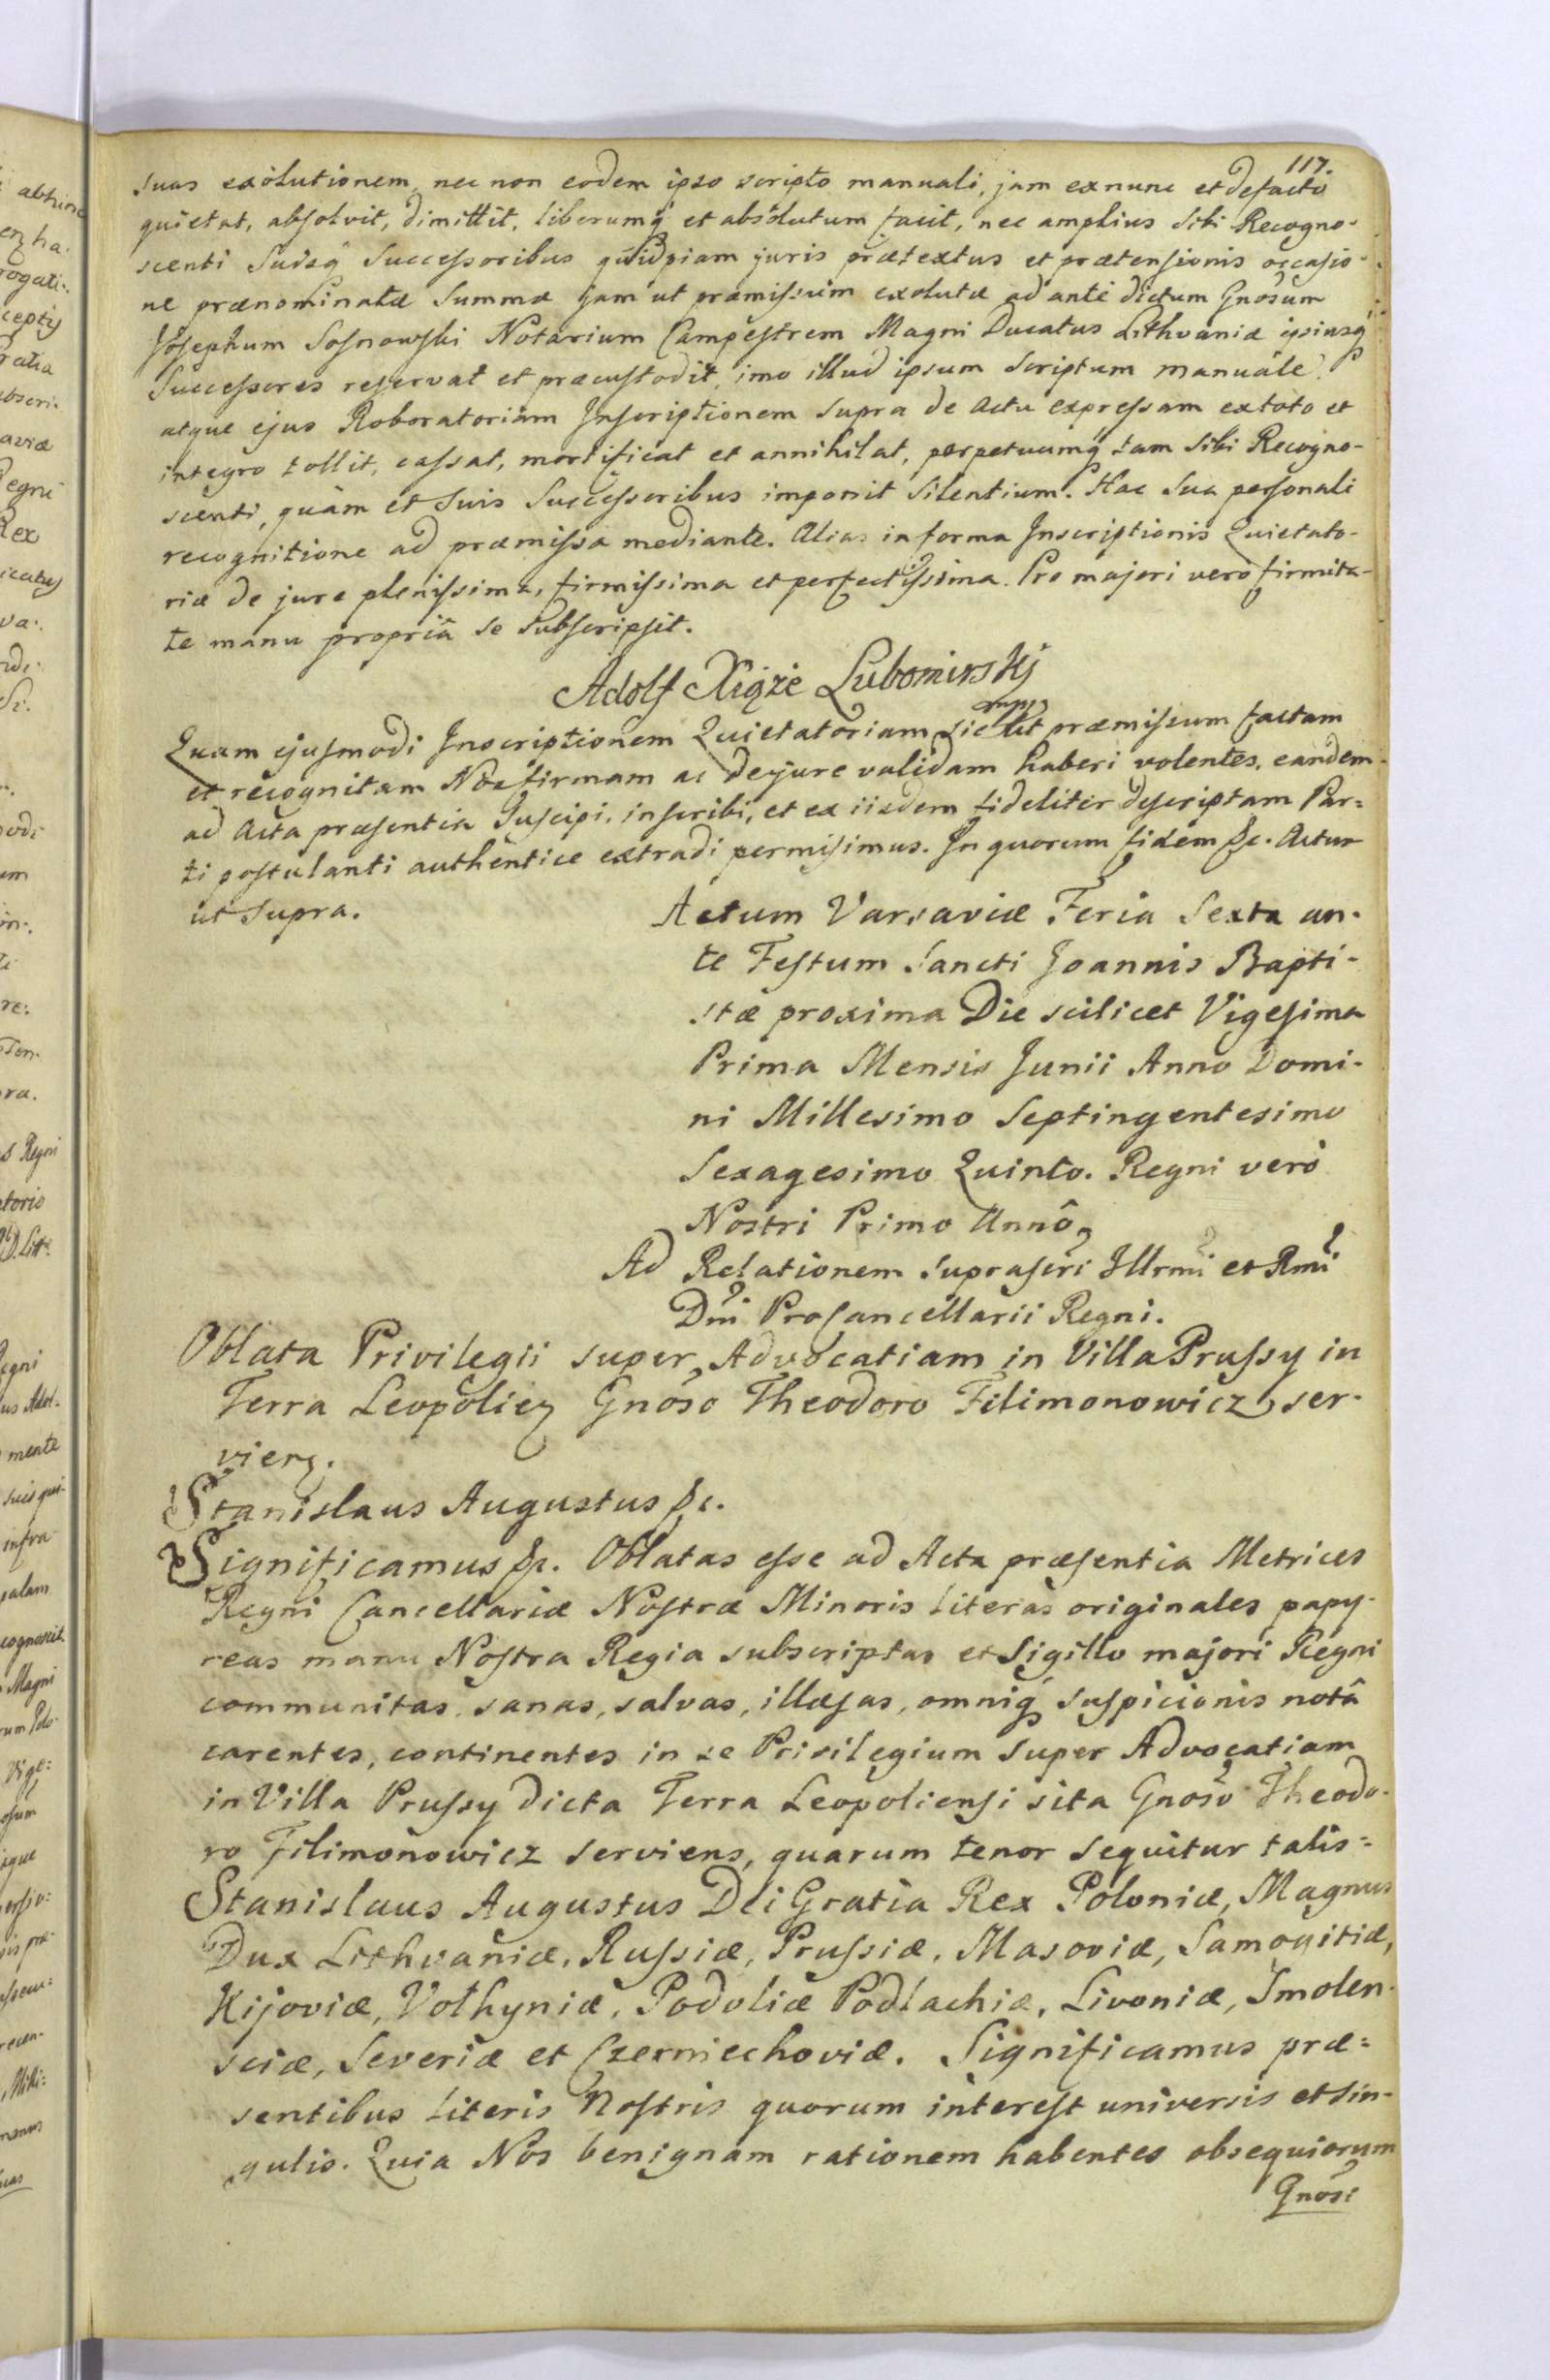 117.
suas exolutionem, nec non eodem ipso scripto manuali, jam exnunc et defacto
quietat, absolvit, dimittit, liberumq́ et absolutum facit, nec amplius sibi Recogno-
scenti Suisq́ Successoribus quidpiam juris prætextus et prætensionis occasio-
ne prænominatæ Summæ jam ut præmissum exolutæ ad ante dictum Gnosum
Josephum Sosnowski Notarium Campestrem Magni Ducatus Lithvaniæ ipsiusq́
Successores reservat et præcustodit, imo illud ipsum Scriptum manuale
atque ejus Roboratoriam Inscriptionem supra de actu expressam extoto et
integro tollit, cassat, mortificat et annihilat, perpetuumq́ tam sibi Recogno-
scenti, quàm et suis Successoribus imponit Silentium. Hac Sua personali
recognitione ad præmissa mediante. Alias in forma Inscriptionis Quietato-
riæ de jure plenissima, firmissima et perfectissima. Pro majori verò firmita-
te manu propriâ se Subscripsit.
Adolf Xiąże Lubomirskj
mpp
Quam ejusmodi Inscriptionem Quietatoriam sic ut præmissum factam
et recognitam Nos firmam ac dejure validam haberi volentes, eandem
ad Acta præsentia Suscipi, inscribi, et ex iisdem fideliter descriptam Par=
ti postulanti authentice extradi permisimus. In quorum fidem &c. Actum
ut Supra.
Actum Varsaviæ Feria Sexta an-
te Festum Sancti Joannis Bapti-
stæ proxima Die scilicet Vigesima
Prima Mensis Junii Anno Domi-
ni Millesimo Septingentesimo
Sexagesimo Quinto. Regni verò
Nostri Primo Annô,
Ad Relationem suprascri Illrmi et Rmi
Dni ProCancellarii Regni.
Oblata Privilegii super Advocatiam in Villa Prussy in
Terra Leopolien Gnoso Theodoro Filimonowicz ser-
vien.
Stanislaus Augustus &c.
Significamus &c. Oblatas esse ad Acta præsentia Metrices
Regni Cancellariæ Nostræ Minoris literas originales papy-
reas manu Nostra Regia subscriptas et Sigillo majori Regni
communitas, sanas, salvas, illæsas, omniq́ suspicionis notâ
carentes, continentes in se Privilegium super Advocatiam
in Villa Prussy dicta Terra Leopoliensi sita Gnoso Theodo-
ro Filimonowicz serviens, quarum tenor sequitur talis=
Stanislaus Augustus Dei Gratia Rex Poloniæ, Magnus
Dux Lithvaniæ, Russiæ, Prussiæ, Masoviæ, Samogitiæ,
Kijoviæ, Volhyniæ, Podoliæ Podlachiæ, Livoniæ, Smolen-
sciæ, Severiæ et Czerniechoviæ. Significamus præ=
sentibus Literis Nostris quorum interest universis et sin-
gulis. Quia Nos benignam rationem habentes obsequiorum
Gnosi